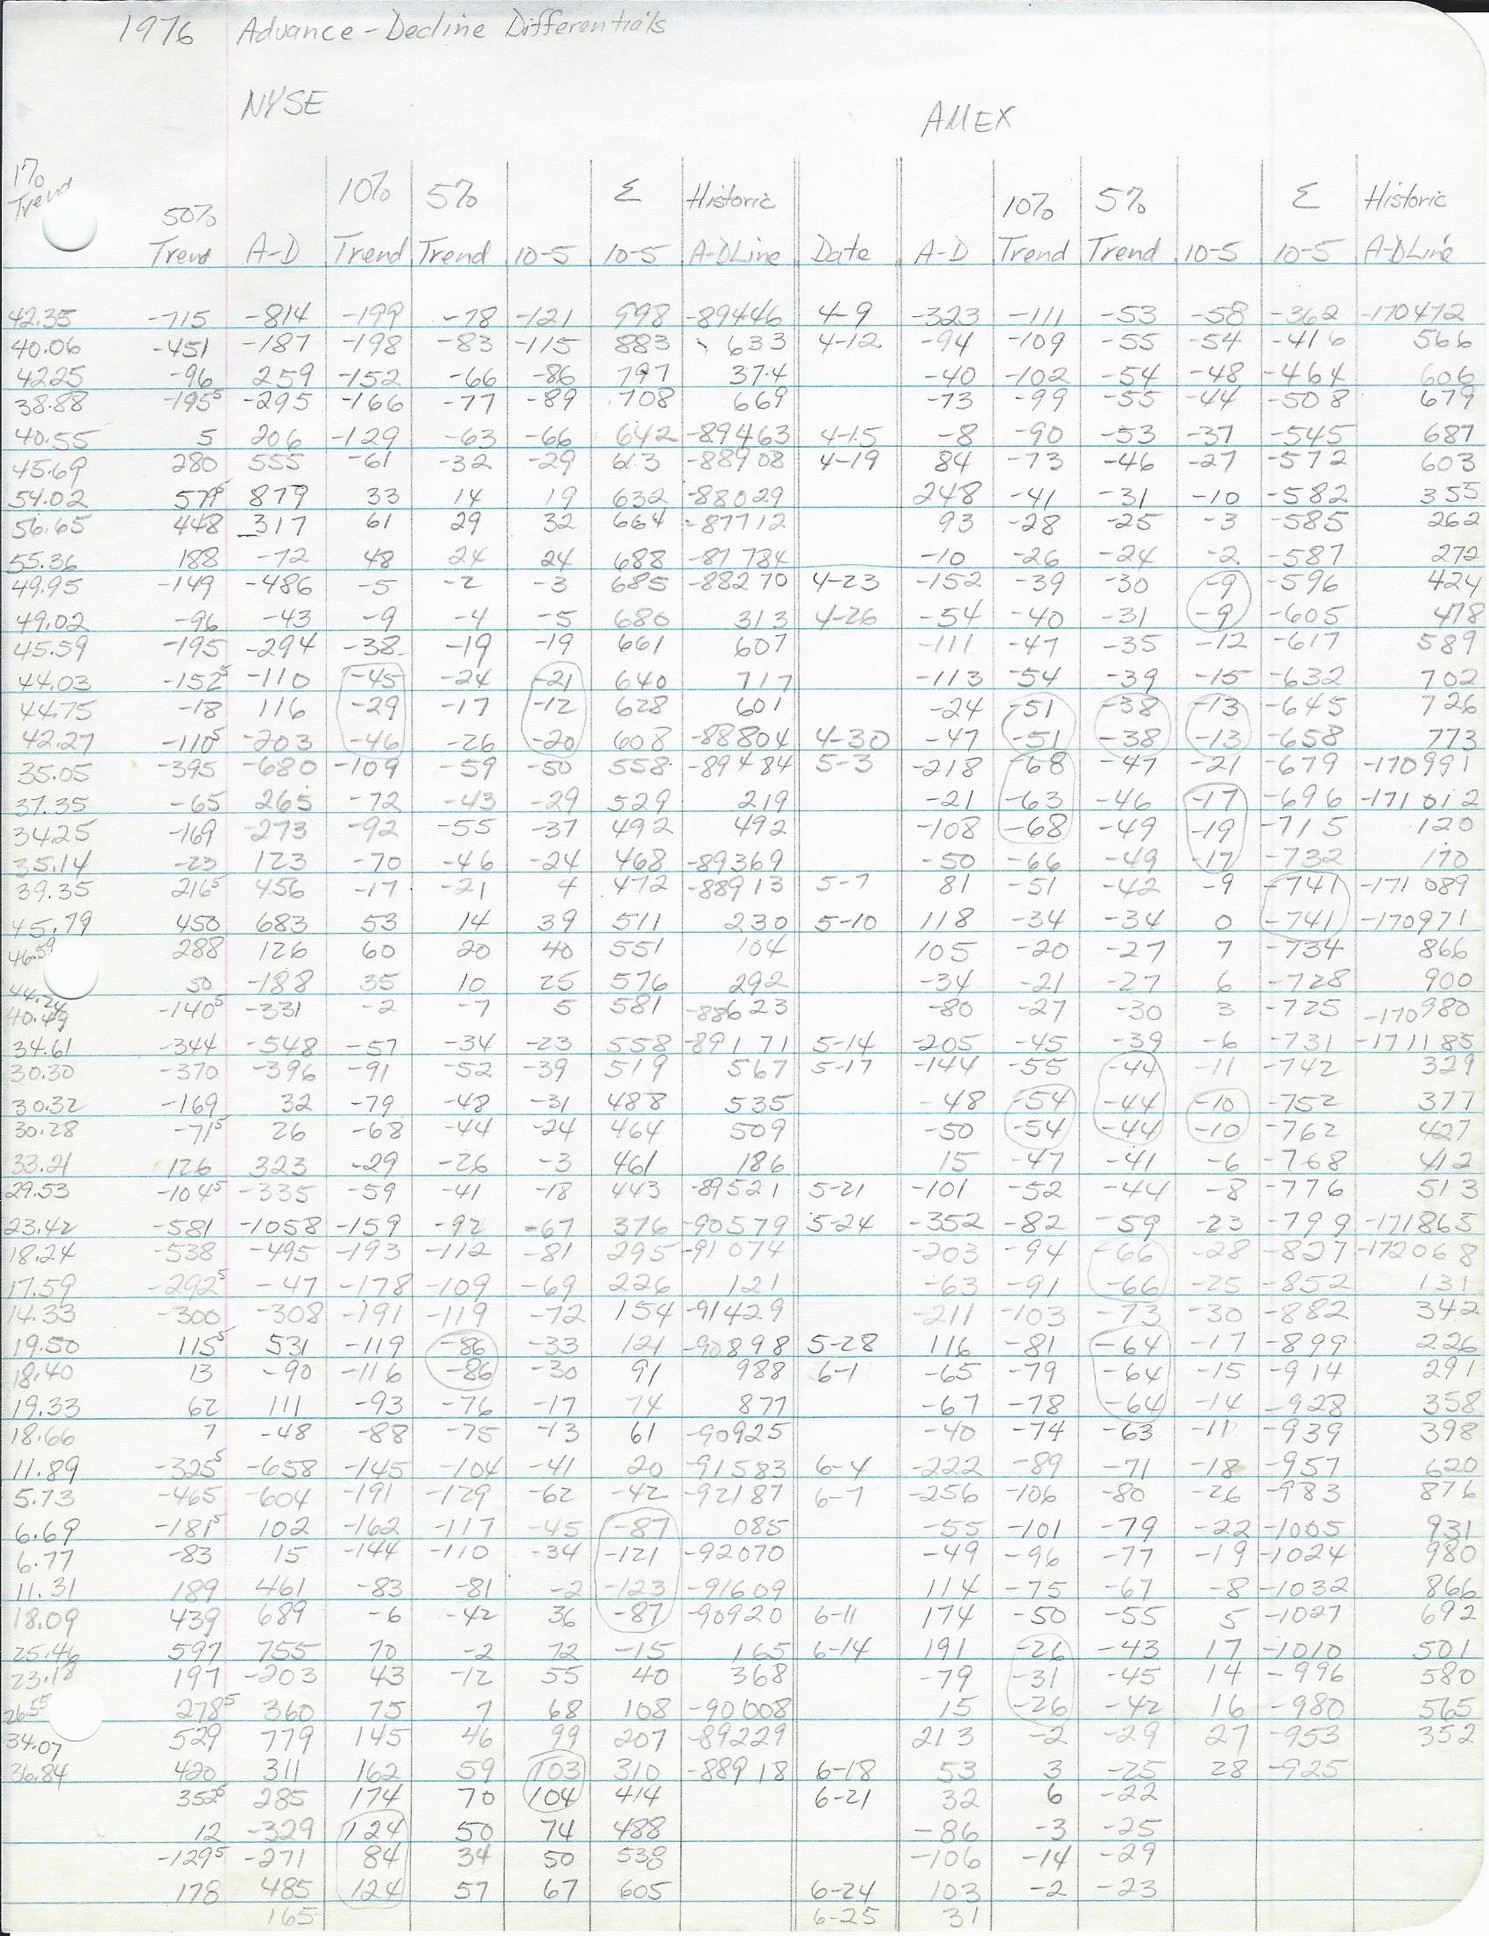 1976 Advance-Decline Differentials
NYSE
AMEX
1% Trend
10% 5% Σ Historic 10% 5% Σ Historic
50%
Trend A-D Trend Trend 10-5 10-5 A-DLine Date A-D Trend Trend 10-5 10-5 A-DLine
42.35 -715 -814 -199 -78 -121 998 -89446 4-9 -323 -111 -53 -58 -362 -170472
40.06 -451 -187 -198 -83 -115 883 633 4-12 -94 -109 -55 -54 -416 566
42.25 -96 259 -152 -66 -86 797 374 -40 -102 -54 -48 -464 606
38.88 -195⁵ -295 -166 -77 -89 708 669 -73 -99 -55 -44 -508 679
40.55 5 206 -129 -63 -66 642 -89463 4-15 -8 -90 -53 -37 -545 687
45.69 280 555 -61 -32 -29 613 -88908 4-19 84 -73 -46 -27 -572 603
54.02 579⁵ 879 33 14 19 632 -88029 248 -41 -31 -10 -582 355
56.65 448 317 61 29 32 664 -87712 93 -28 -25 -3 -585 262
55.36 188 -72 48 24 24 688 -87784 -10 -26 -24 -2 -587 272
49.95 -149 -486 -5 -2 -3 685 -88270 4-23 -152 -39 -30 -9 -596 424
49.02 -96 -43 -9 -4 -5 680 313 4-26 -54 -40 -31 -9 -605 478
45.59 -195 -294 -38 -19 -19 661 607 -111 -47 -35 -12 -617 589
44.03 -152⁵ -110 -45 -24 -21 640 717 -113 -54 -39 -15 -632 702
44.75 -18 116 -29 -17 -12 628 601 -24 -51 -38 -13 -645 726
42.27 -110⁵ -203 -46 -26 -20 608 -88804 4-30 -47 -51 -38 -13 -658 773
35.05 -395 -680 -109 -59 -50 558 -89484 5-3 -218 -68 -47 -21 -679 -170991
37.35 -65 265 -72 -43 -29 529 219 -21 -63 -46 -17 -696 -171012
34.25 -169 -273 -92 -55 -37 492 492 -108 -68 -49 -19 -715 120
35.14 -23 123 -70 -46 -24 468 -89369 -50 -66 -49 -17 -732 170
39.35 216⁵ 456 -17 -21 4 472 -88913 5-7 81 -51 -42 -9 -741 -171089
45.79 450 683 53 14 39 511 230 5-10 118 -34 -34 0 -741 -170971
46.59 288 126 60 20 40 551 104 105 -20 -27 7 -734 866
44.24 50 -188 35 10 25 576 292 -34 -21 -27 6 -728 900
40.49 -140⁵ -331 -2 -7 5 581 -88623 -80 -27 -30 3 -725 -170980
34.61 -344 -548 -57 -34 -23 558 -89171 5-14 -205 -45 -39 -6 -731 -171185
30.30 -370 -396 -91 -52 -39 519 567 5-17 -144 -55 -44 -11 -742 329
30.32 -169 32 -79 -48 -31 488 535 -48 -54 -44 -10 -752 377
30.28 -71⁵ 26 -68 -44 -24 464 509 -50 -54 -44 -10 -762 427
33.21 126 323 -29 -26 -3 461 186 15 -47 -41 -6 -768 412
29.53 -104⁵ -335 -59 -41 -18 443 -89521 5-21 -101 -52 -44 -8 -776 513
23.42 -581 -1058 -159 -92 -67 376 -90579 5-24 -352 -82 -59 -23 -799 -171865
18.24 -538 -495 -193 -112 -81 295 -91074 -203 -94 -66 -28 -827 -172068
17.59 -292⁵ -47 -178 -109 -69 226 121 -63 -91 -66 -25 -852 131
14.33 -300 -308 -191 -119 -72 154 -91429 -211 -103 -73 -30 -882 342
19.50 115⁵ 531 -119 -86 -33 121 -90898 5-28 116 -81 -64 -17 -899 226
18.40 13 -90 -116 -86 -30 91 988 6-1 -65 -79 -64 -15 -914 291
19.33 62 111 -93 -76 -17 74 877 -67 -78 -64 -14 -928 358
18.66 7 -48 -88 -75 -13 61 -90925 -40 -74 -63 -11 -939 398
11.89 -325⁵ -658 -145 -104 -41 20 -91583 6-4 -222 -89 -71 -18 -957 620
5.73 -465 -604 -191 -129 -62 -42 -92187 6-7 -256 -106 -80 -26 -983 876
6.69 -181⁵ 102 -162 -117 -45 -87 085 -55 -101 -79 -22 -1005 931
6.77 -83 15 -144 -110 -34 -121 -92070 -49 -96 -77 -19 -1024 980
11.31 189 461 -83 -81 -2 -123 -91609 114 -75 -67 -8 -1032 866
18.09 439 689 -6 -42 36 -87 -90920 6-11 174 -50 -55 5 -1027 692
25.46 597 755 70 -2 72 -15 165 6-14 191 -26 -43 17 -1010 501
23.18 197 -203 43 -12 55 40 368 -79 -31 -45 14 -996 580
26.55 278⁵ 360 75 7 68 108 -90008 15 -26 -42 16 -980 565
34.07 529 779 145 46 99 207 -89229 213 -2 -29 27 -953 352
36.84 420 311 162 59 103 310 -88918 6-18 53 3 -25 28 -925
352⁵ 285 174 70 104 414 6-21 32 6 -22
12 -329 124 50 74 488 -86 -3 -25
-129⁵ -271 84 34 50 538 -106 -14 -29
178 485 124 57 67 605 6-24 103 -2 -23
165 6-25 31